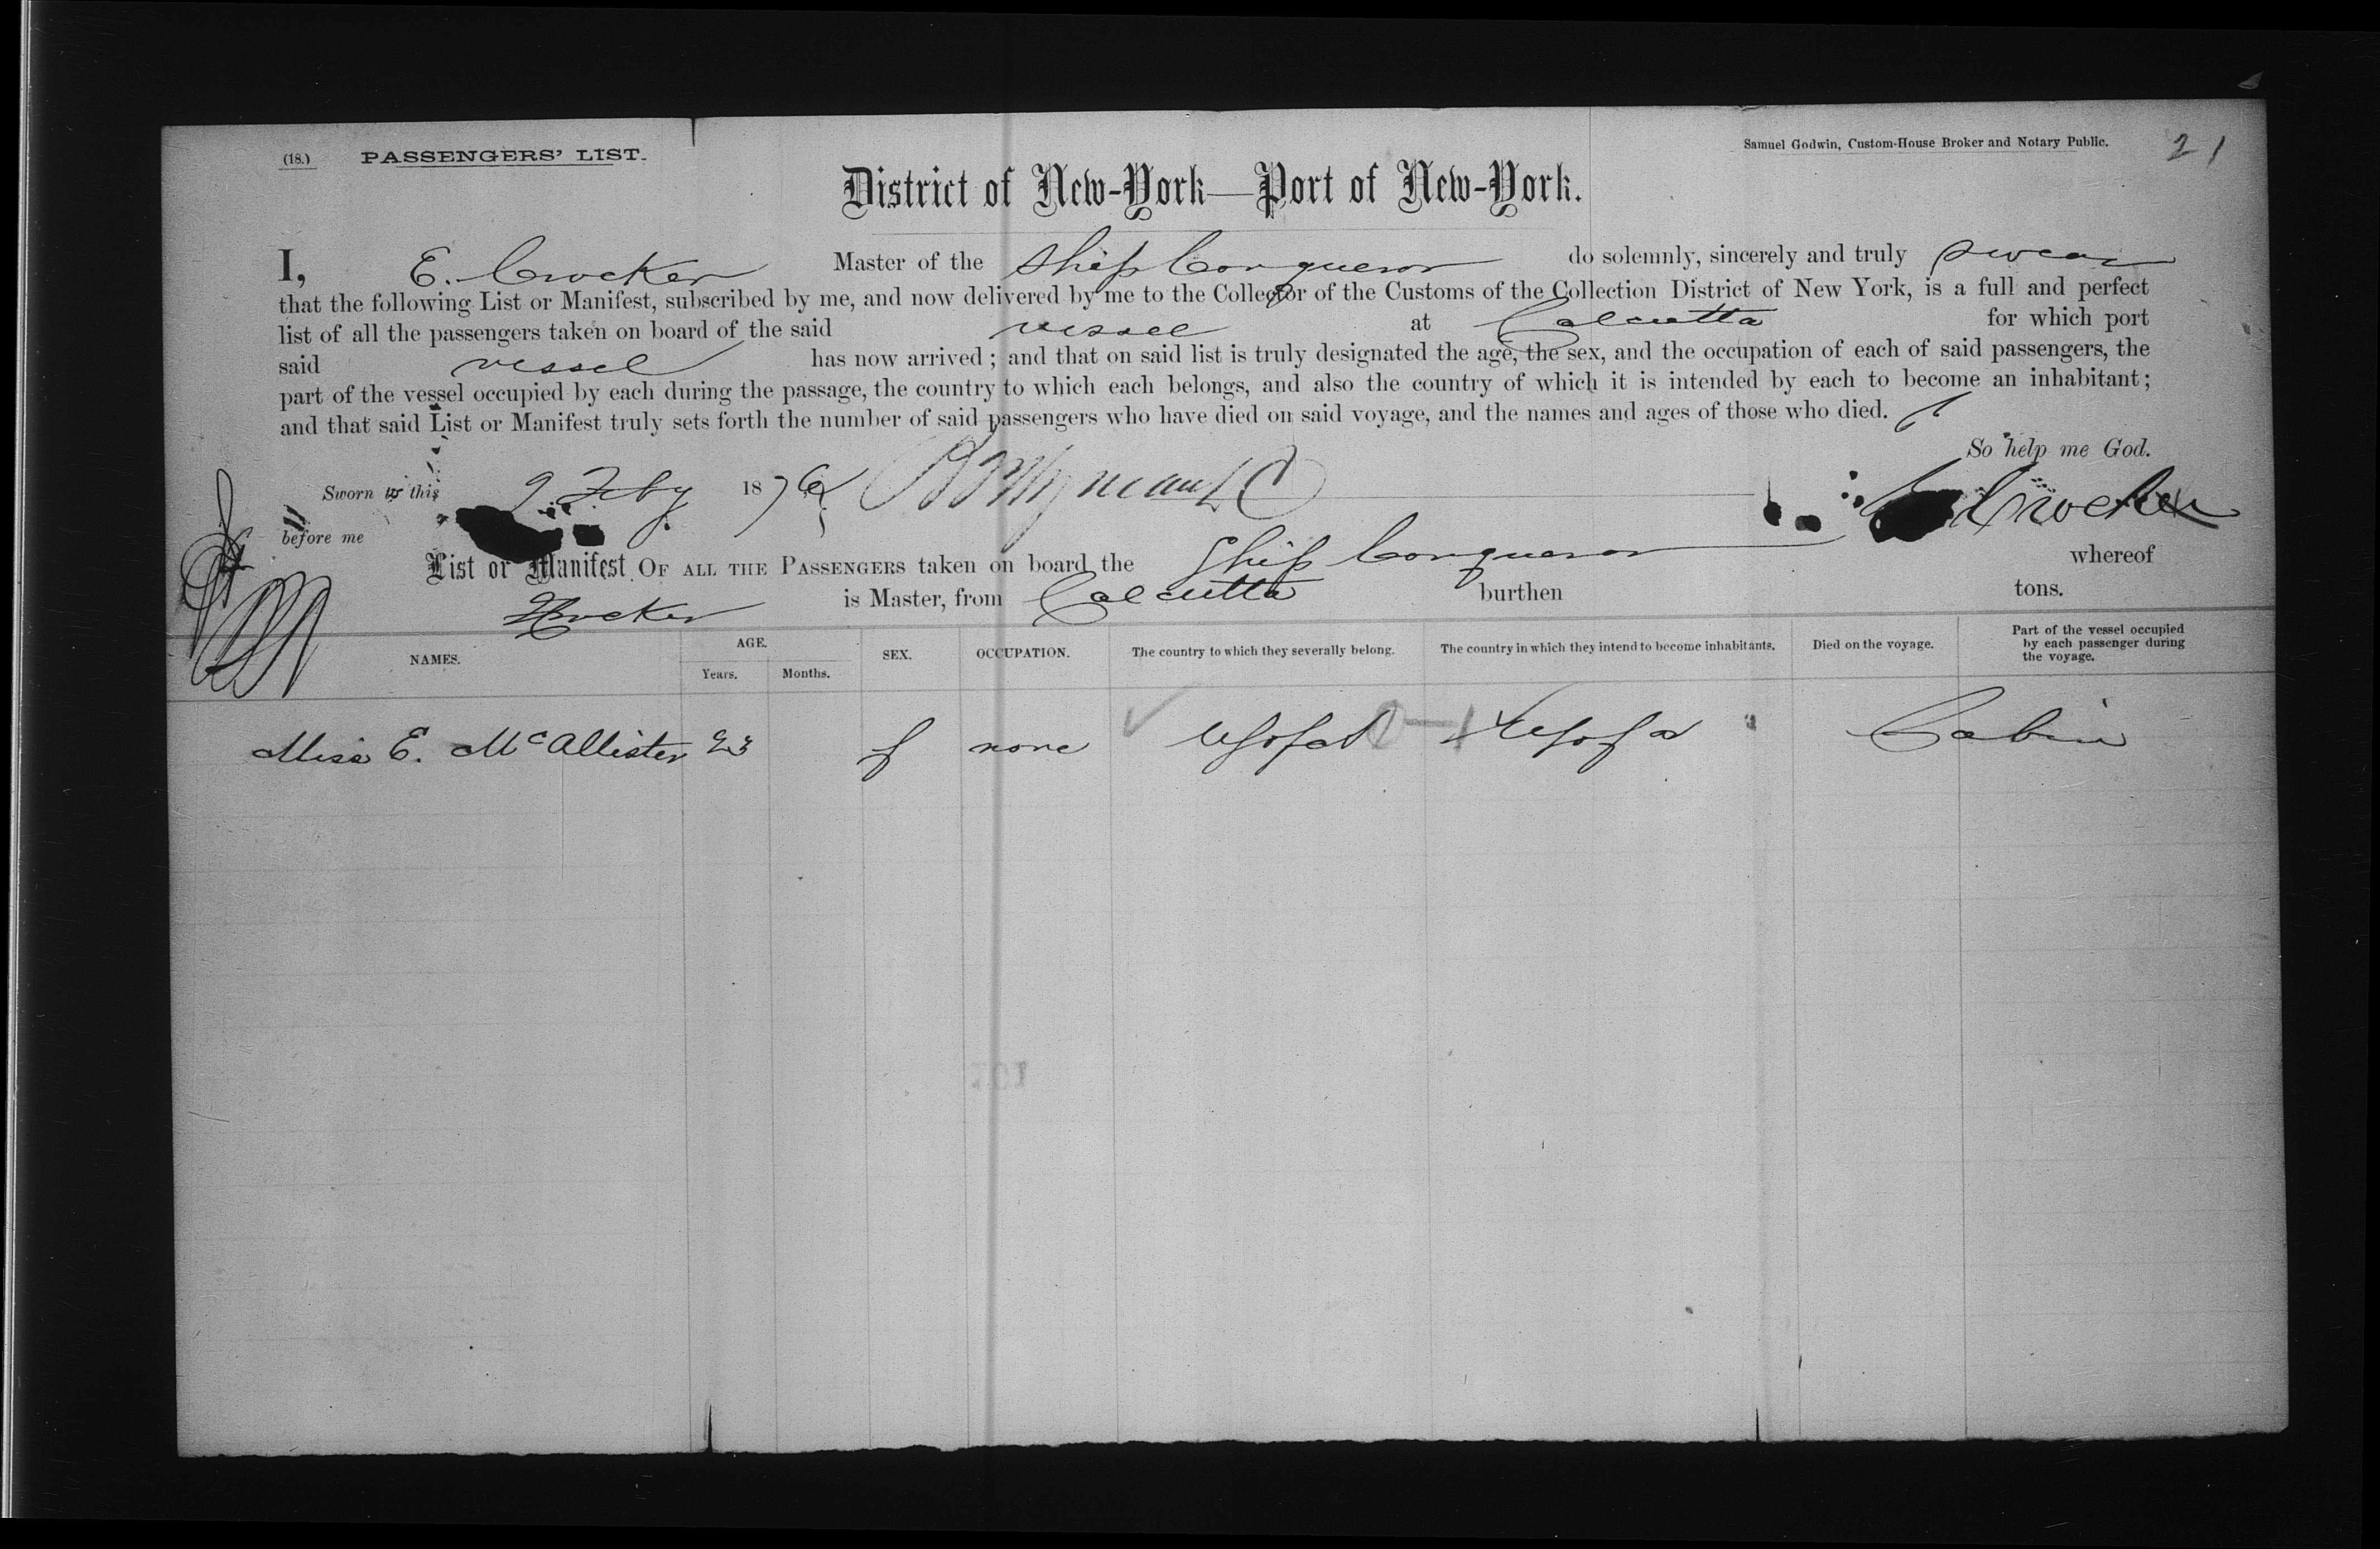 (18.) PASSENGERS' LIST. Samuel Godwin, Custom-House Broker and Notary Public. 21
District of New-York—Port of New-York.
I, E. Crocker Master of the Ship Conqueror do solemnly, sincerely and truly swear
that the following List or Manifest, subscribed by me, and now delivered by me to the Collector of the Customs of the Collection District of New York, is a full and perfect
list of all the passengers taken on board of the said vessel at Calcutta for which port
said vessel has now arrived; and that on said list is truly designated the age, the sex, and the occupation of each of said passengers, the
part of the vessel occupied by each during the passage, the country to which each belongs, and also the country of which it is intended by each to become an inhabitant;
and that said List or Manifest truly sets forth the number of said passengers who have died on said voyage, and the names and ages of those who died.
So help me God.
Sworn to this 9 Feby 1876 Crocker
before me
List or Manifest OF ALL THE PASSENGERS taken on board the Ship Conqueror whereof
Crocker is Master, from Calcutta burthen tons.
NAMES. AGE. Years. Months. SEX. OCCUPATION. The country to which they severally belong. The country in which they intend to become inhabitants. Died on the voyage. Part of the vessel occupied by each passenger during the voyage.
Miss E. McAllister 23 f none U S of A U S of A Cabin